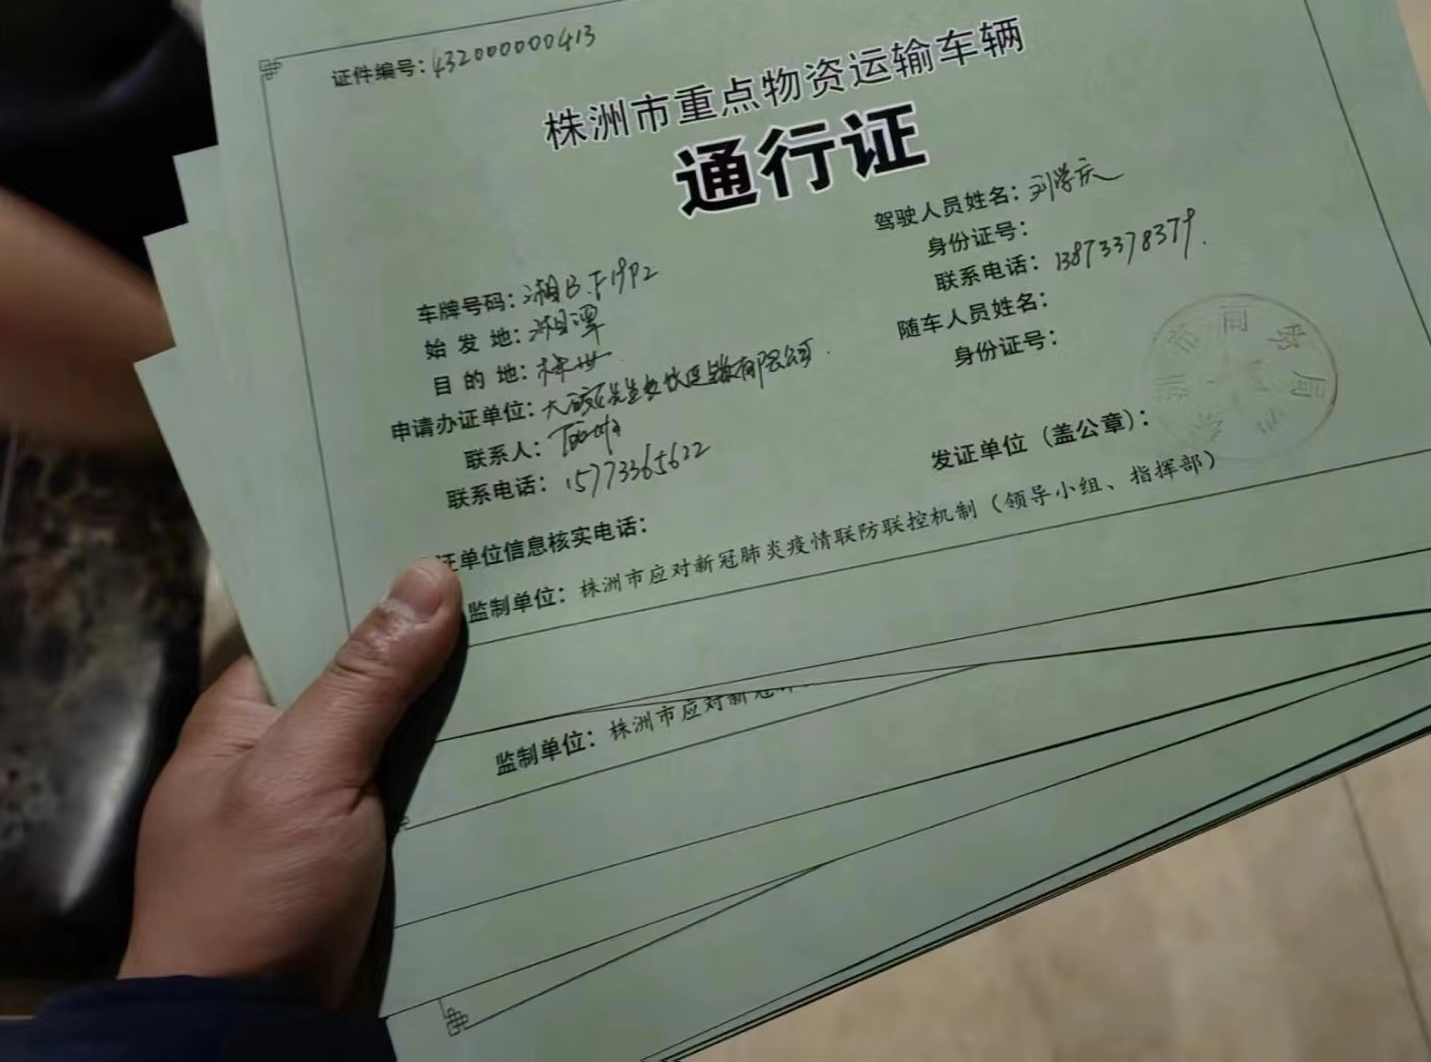 证件编号：432000000413
株洲市重点物资运输车辆
通行证
车牌号码：湘B.F19P2
始发地：湘潭
目的地：株洲
申请办证单位：大碗先生餐饮连锁有限公司.
联系人：
联系电话：15773365622
驾驶人员姓名：刘学庆
身份证号：
联系电话：13873378379.
随车人员姓名：
身份证号：
发证单位（盖公章）：
市商务局
证单位信息核实电话：
监制单位：株洲市应对新冠肺炎疫情联防联控机制（领导小组、指挥部）
监制单位：株洲市应对新冠